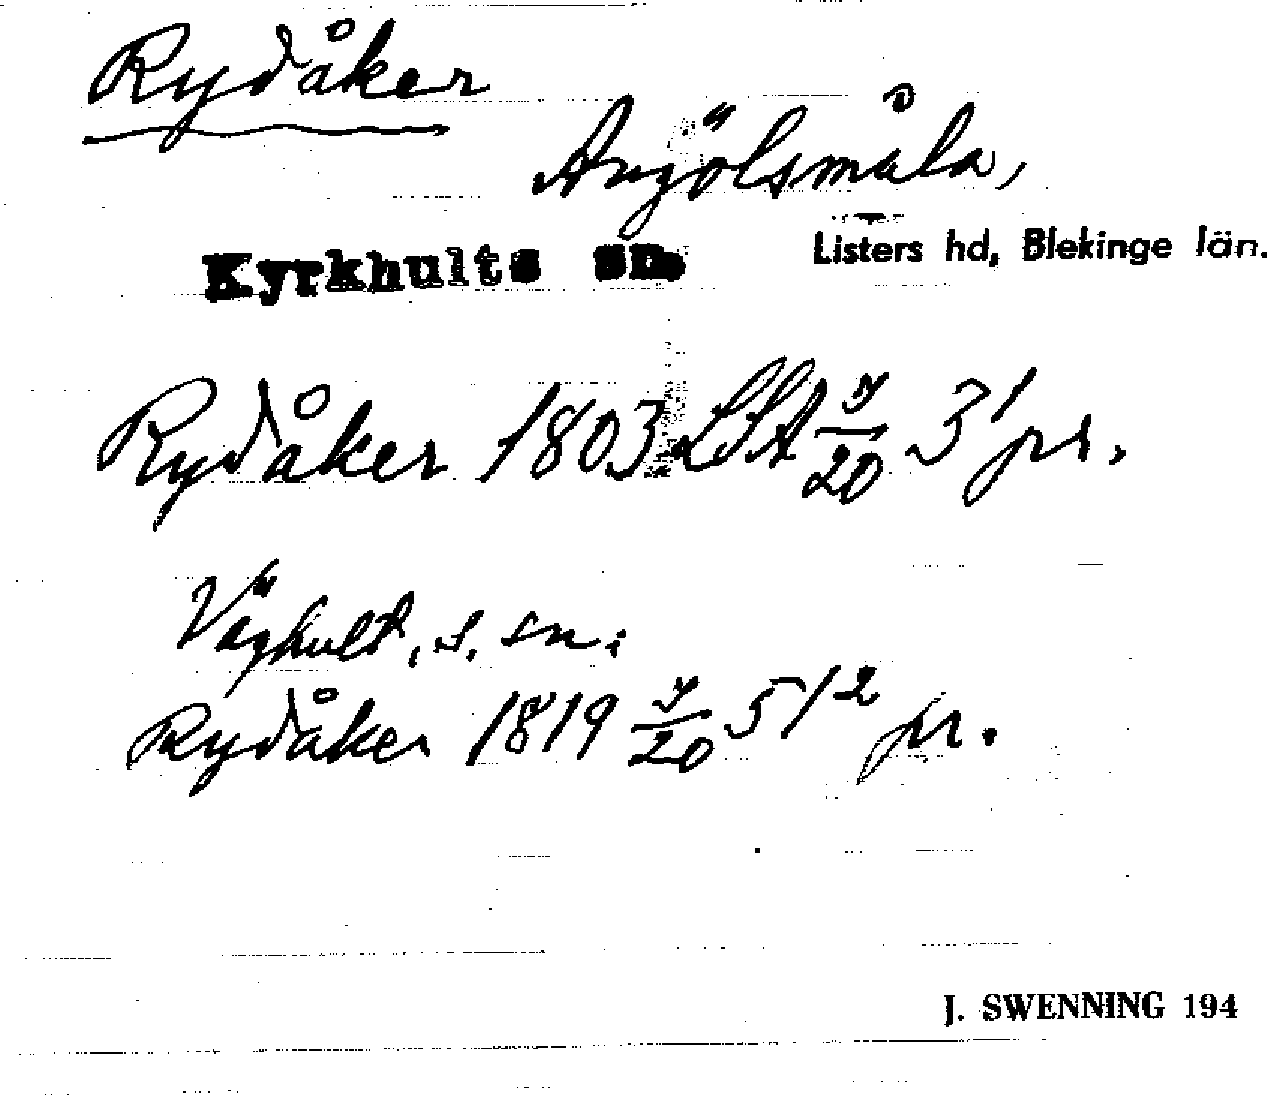 Rydåker
Angölsmåla,
Kyrkhults sn
Listers hd, Blekinge län.
Rydåker 1803 LSA 7/20 3¹ pr.
Väghult, s. sn.
Rydåker 1819 7/20 51² pr.
J. SWENNING 194